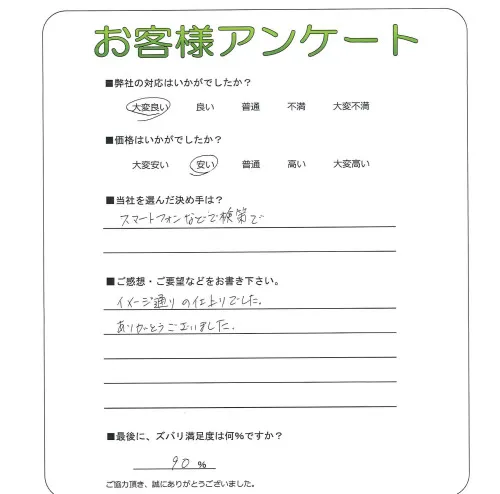 お客様アンケート
■弊社の対応はいかがでしたか？
大変良い 良い 普通 不満 大変不満
■価格はいかがでしたか？
大変安い 安い 普通 高い 大変高い
■当社を選んだ決め手は？
スマートフォンなどで検策で
■ご感想・ご要望などをお書き下さい。
イメージ通りの仕上りでした。
ありがとうございました。
■最後に、ズバリ満足度は何%ですか？
90 %
ご協力頂き、誠にありがとうございました。